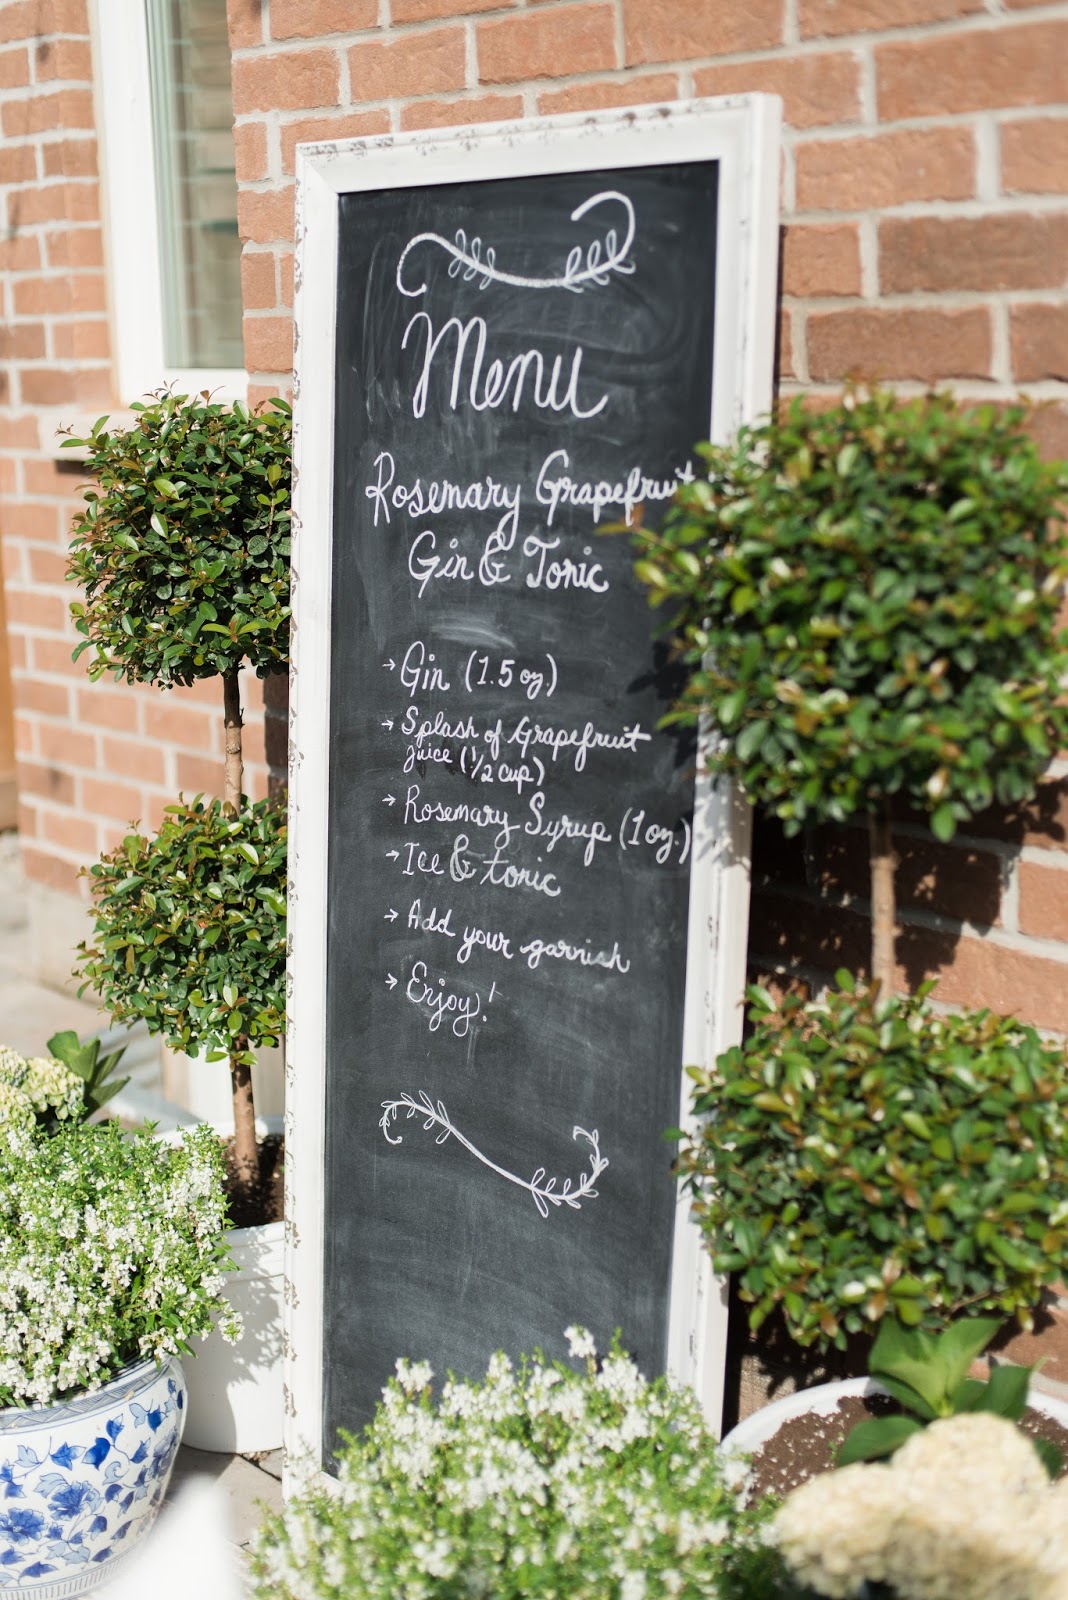 Menu
Rosemary Grapefruit
Gin & Tonic
→ Gin (1.5 oz.)
→ Splash of Grapefruit
juice (1/2 cup)
→ Rosemary Syrup (1 oz.)
→ Ice & tonic
→ Add your garnish
→ Enjoy!